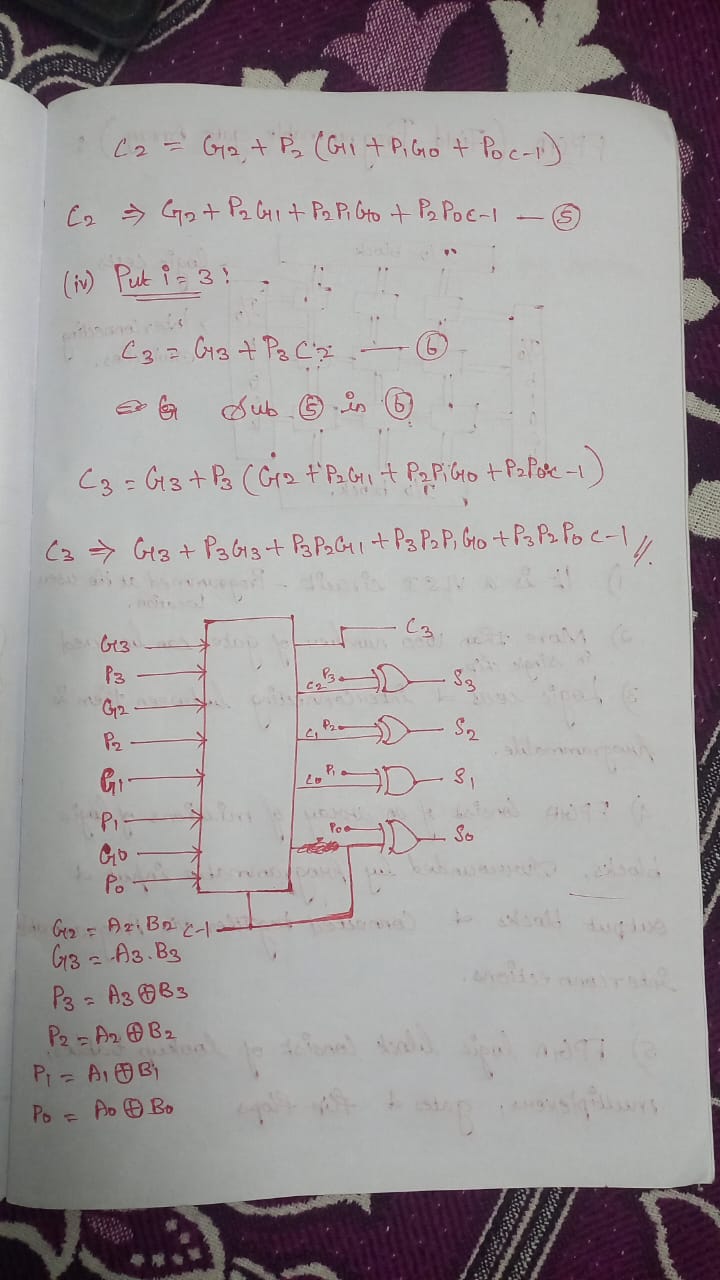 C2 = G2 + P2 (G1 + P1G0 + P0C-1)
C2 ⇒ G2 + P2G1 + P2P1G0 + P2P0C-1 — ⑤
(iv) Put i = 3:
C3 = G3 + P3 C2 — ⑥
Sub ⑤ in ⑥
C3 = G3 + P3 (G2 + P2G1 + P2P1G0 + P2P0C-1)
C3 ⇒ G3 + P3G3 + P3P2G1 + P3P2P1G0 + P3P2P0C-1 //.
G3
C3
P3
C2 P3 S3
G2
P2
C1 P2 S2
G1
C0 P1 S1
P1
G0
P0 S0
P0
G2 = A2.B2 C-1
G3 = A3.B3
P3 = A3 ⊕ B3
P2 = A2 ⊕ B2
P1 = A1 ⊕ B1
P0 = A0 ⊕ B0